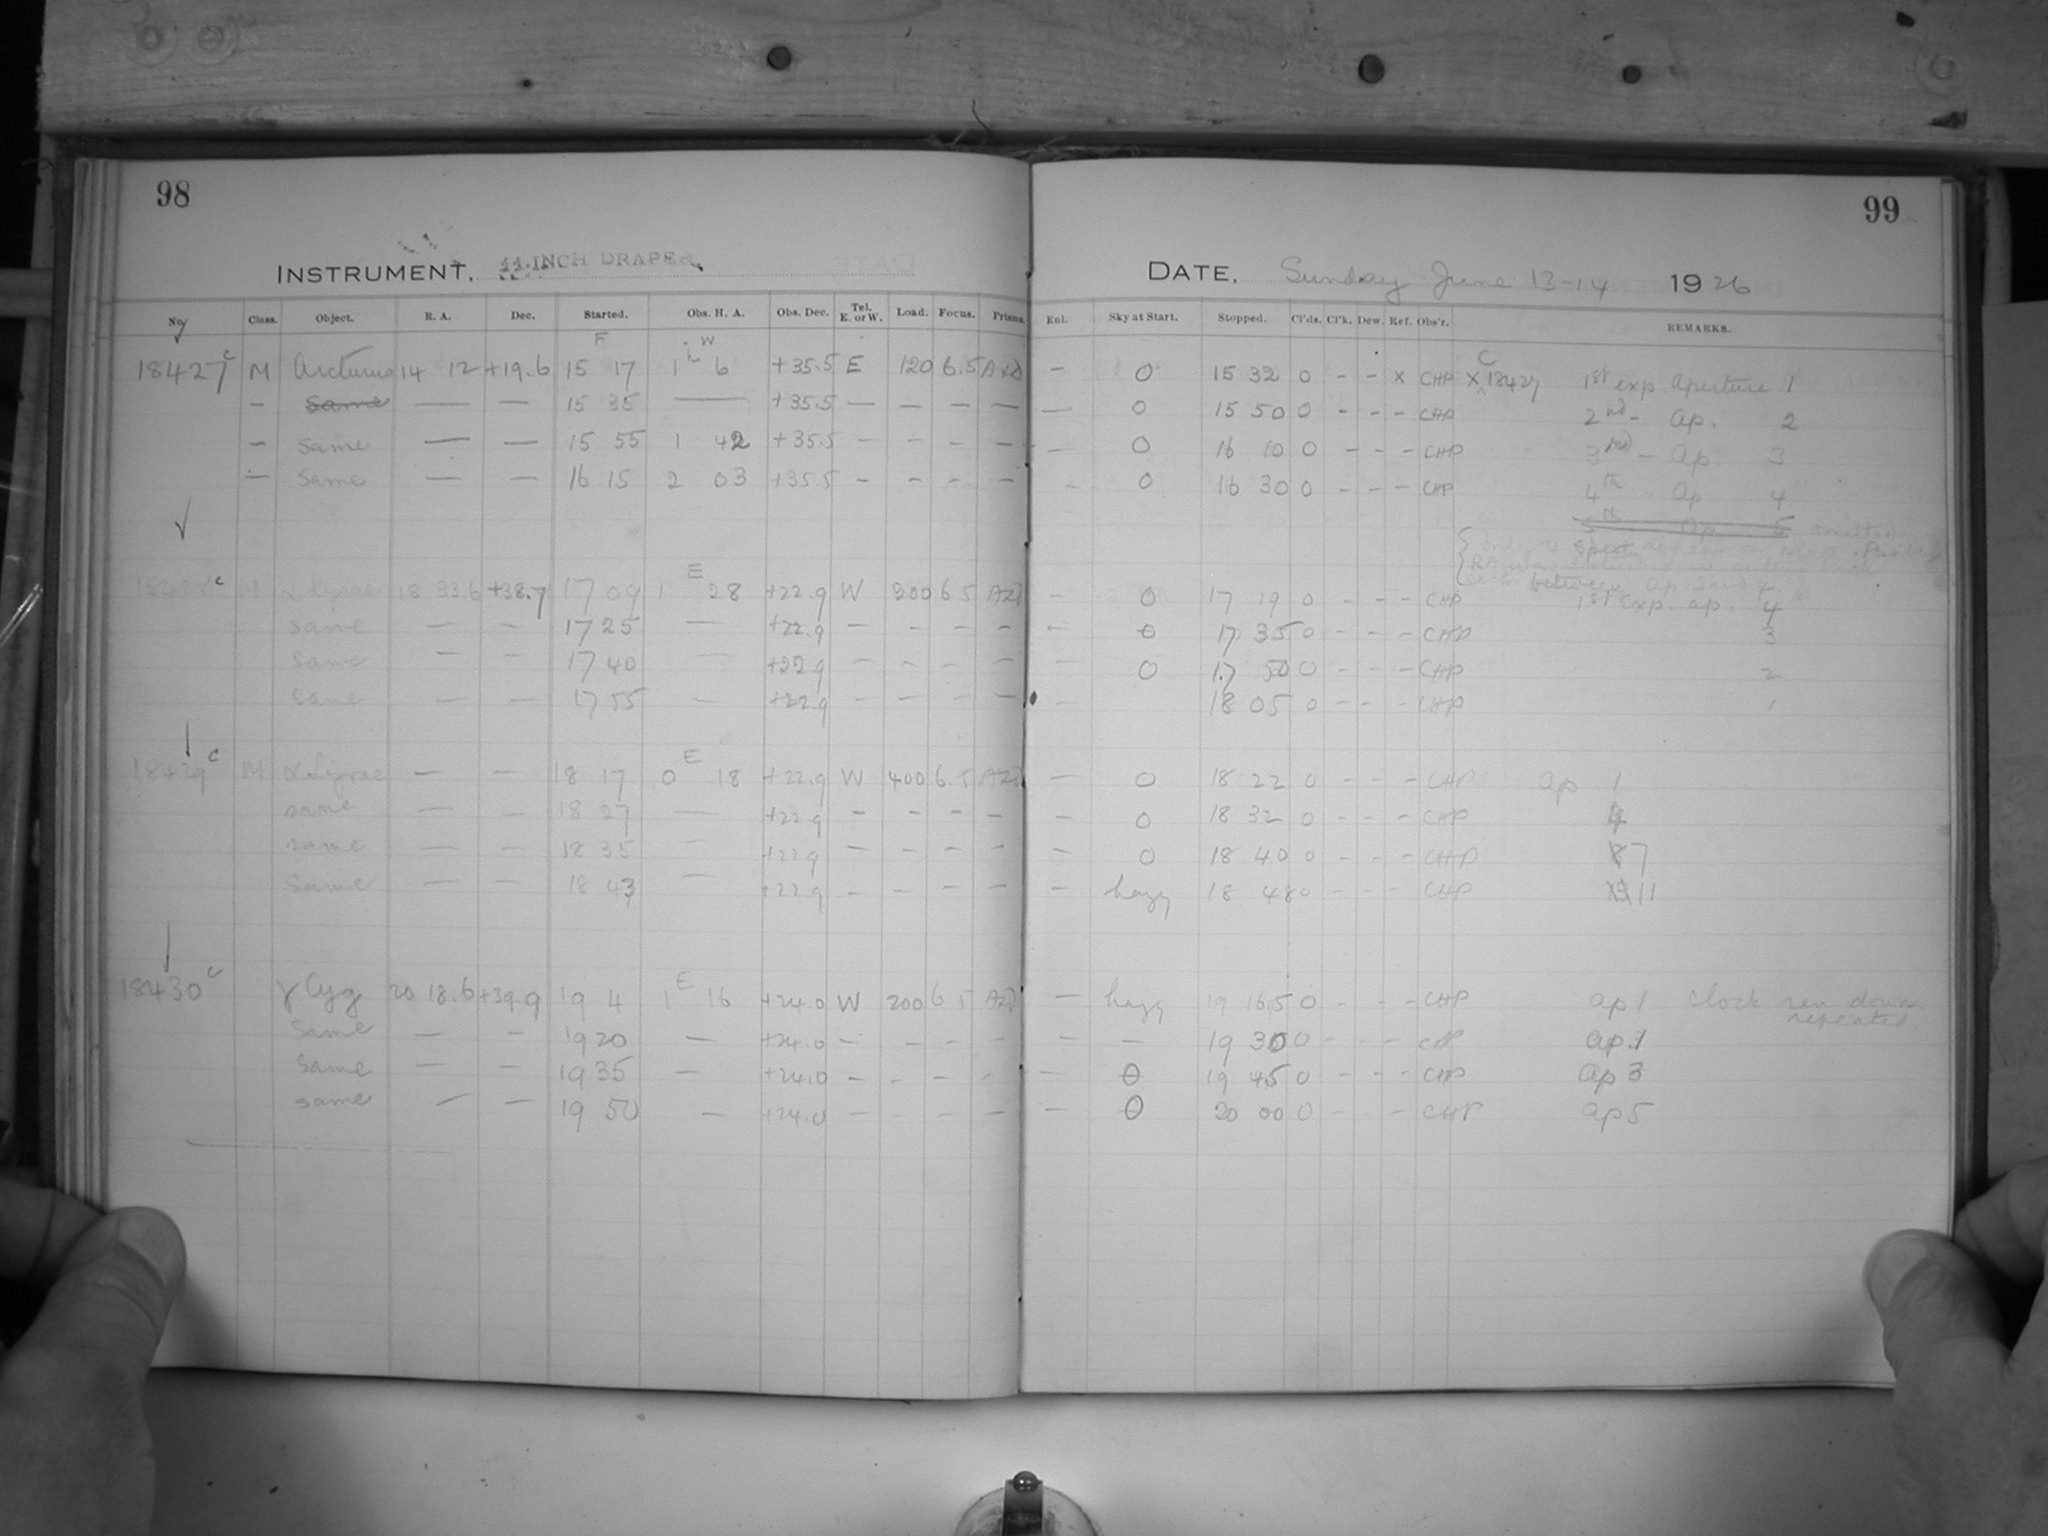 98
INSTRUMENT. 11-INCH DRAPER.
No. Class. Object. R. A. Dec. Started. Obs. H. A. Obs. Dec. Tel. E. or W. Load. Focus. Prisms
18427c M Arcturus 14 12 +19.6 F 15 17 1 W 6 +35.5 E 120 6.5 AxD
— Same — — 15 35 — +35.5 — — — —
— same — — 15 55 1 42 +35.5 — — — —
— Same — — 16 15 2 03 +35.5 — — — —
18428c M α Lyrae 18 33.6 +38.7 17 09 1 E 28 +22.9 W 200 6.5
same — — 17 25 — +22.9 — — — —
same — — 17 40 — +22.9 — — — —
same — — 17 55 — +22.9 — — — —
18429c M α Lyrae — — 18 17 0 E 18 +22.9 W 400 6.5
same — — 18 27 — +22.9 — — — —
same — — 18 35 — +22.9 — — — —
Same — — 18 43 — +22.9 — — — —
18430c γ Cyg 20 18.6 +39.9 19 4 1 E 16 +24.0 W 200 6 5
Same — — 19 20 — +24.0 — — — —
Same — — 19 35 — +24.0 — — — —
same — — 19 50 — +24.0 — — — —
99
DATE. Sunday June 13-14 1926
Enl. Sky at Start. Stopped. Cl'ds. Cl'k. Dew. Ref. Obs'r. REMARKS.
— 0 15 32 0 - - x CHP x C 18427 1st exp. Aperture 1
— 0 15 50 0 - - - CHP 2nd - Ap. 2
— 0 16 10 0 - - - CHP 3rd - Ap. 3
- 0 16 30 0 - - - CHP 4th Ap 4
5th Ap. 5 omitted
only 4 spectra appear on plate. Possibly
between Ap 3 and 4
— 0 17 19 0 - - - CHP 1st Exp. ap. 4
— 0 17 35 0 - - - CHP 3
— 0 17 50 0 - - - CHP 2
- 18 05 0 - - - CHP 1
— 0 18 22 0 - - - CHP ap 1
— 0 18 32 0 - - - CHP 4
— 0 18 40 0 - - - CHP 7
— hazy 18 48 0 - - - CHP 11
— hazy 19 16.5 0 - - - CHP ap 1 Clock ran down
repeated.
— — 19 30 0 - - - CHP ap. 1
— 0 19 45 0 - - - CHP ap 3
— 0 20 00 0 - - - CHP ap 5